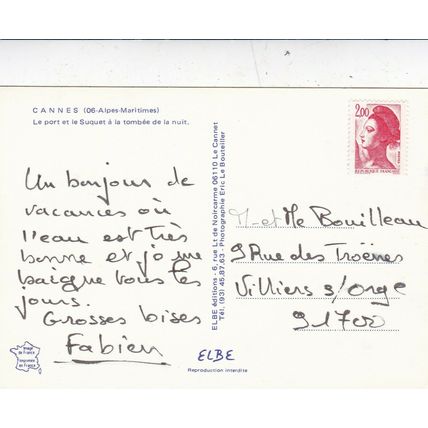 CANNES (06-Alpes-Maritimes)
Le port et le Suquet à la tombée de la nuit.
Un bonjour de
vacances où
l'eau est très
bonne et je me
baigne tous les
jours.
Grosses bises
Fabien
ELBE éditions - 6, rue Lt de Noircarme 06110 Le Cannet
Tél. (93) 45.87.63 - Photographie Eric Le Bouteiller
2,00
REPUBLIQUE FRANÇAISE
M et Me Bouilleau
9 Rue des Troènes
Villiers s/orge
91700
ELBE
Reproduction interdite
Image
de France
Imprimerie
de France